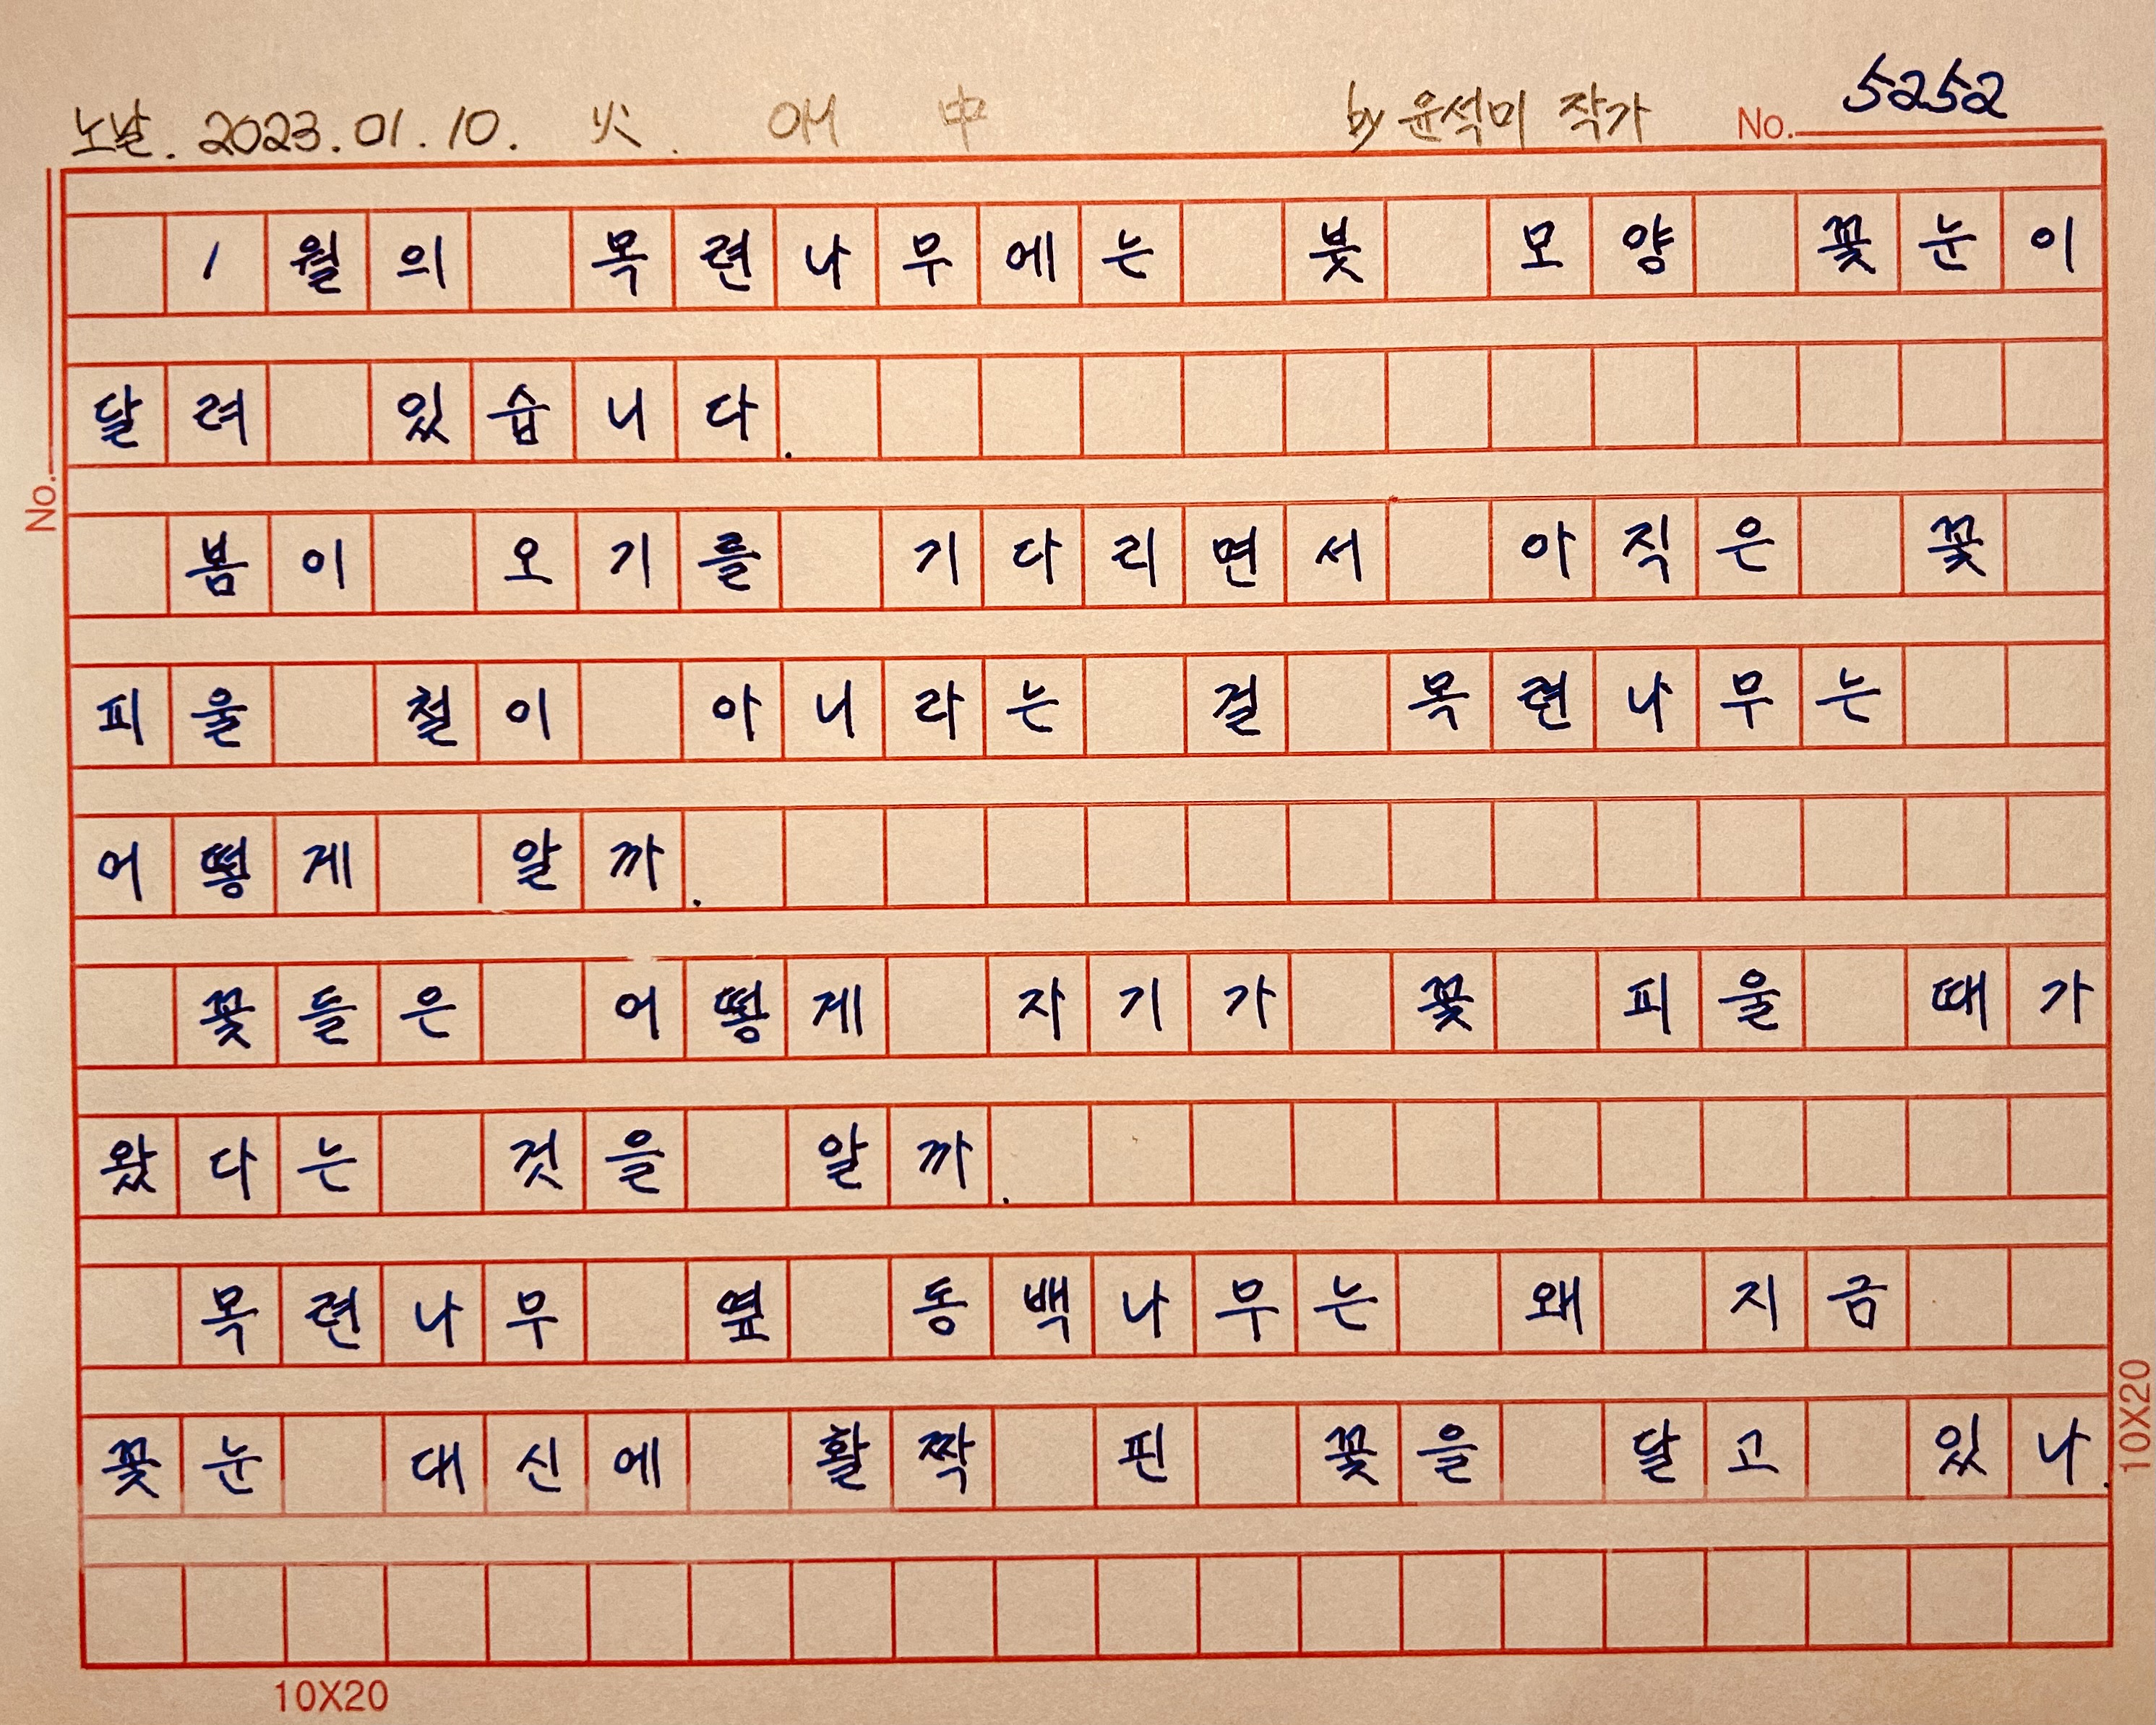 노날. 2023.01.10. 火. OH 中 by 윤석미 작가 No. 5252
1월의 목련나무에는 붓 모양 꽃눈이
달려 있습니다.
No.
봄이 오기를 기다리면서 아직은 꽃
피울 철이 아니라는 걸 목련나무는
어떻게 알까.
꽃들은 어떻게 자기가 꽃 피울 때가
왔다는 것을 알까.
목련나무 옆 동백나무는 왜 지금
꽃눈 대신에 활짝 핀 꽃을 달고 있나.
10X20
10X20